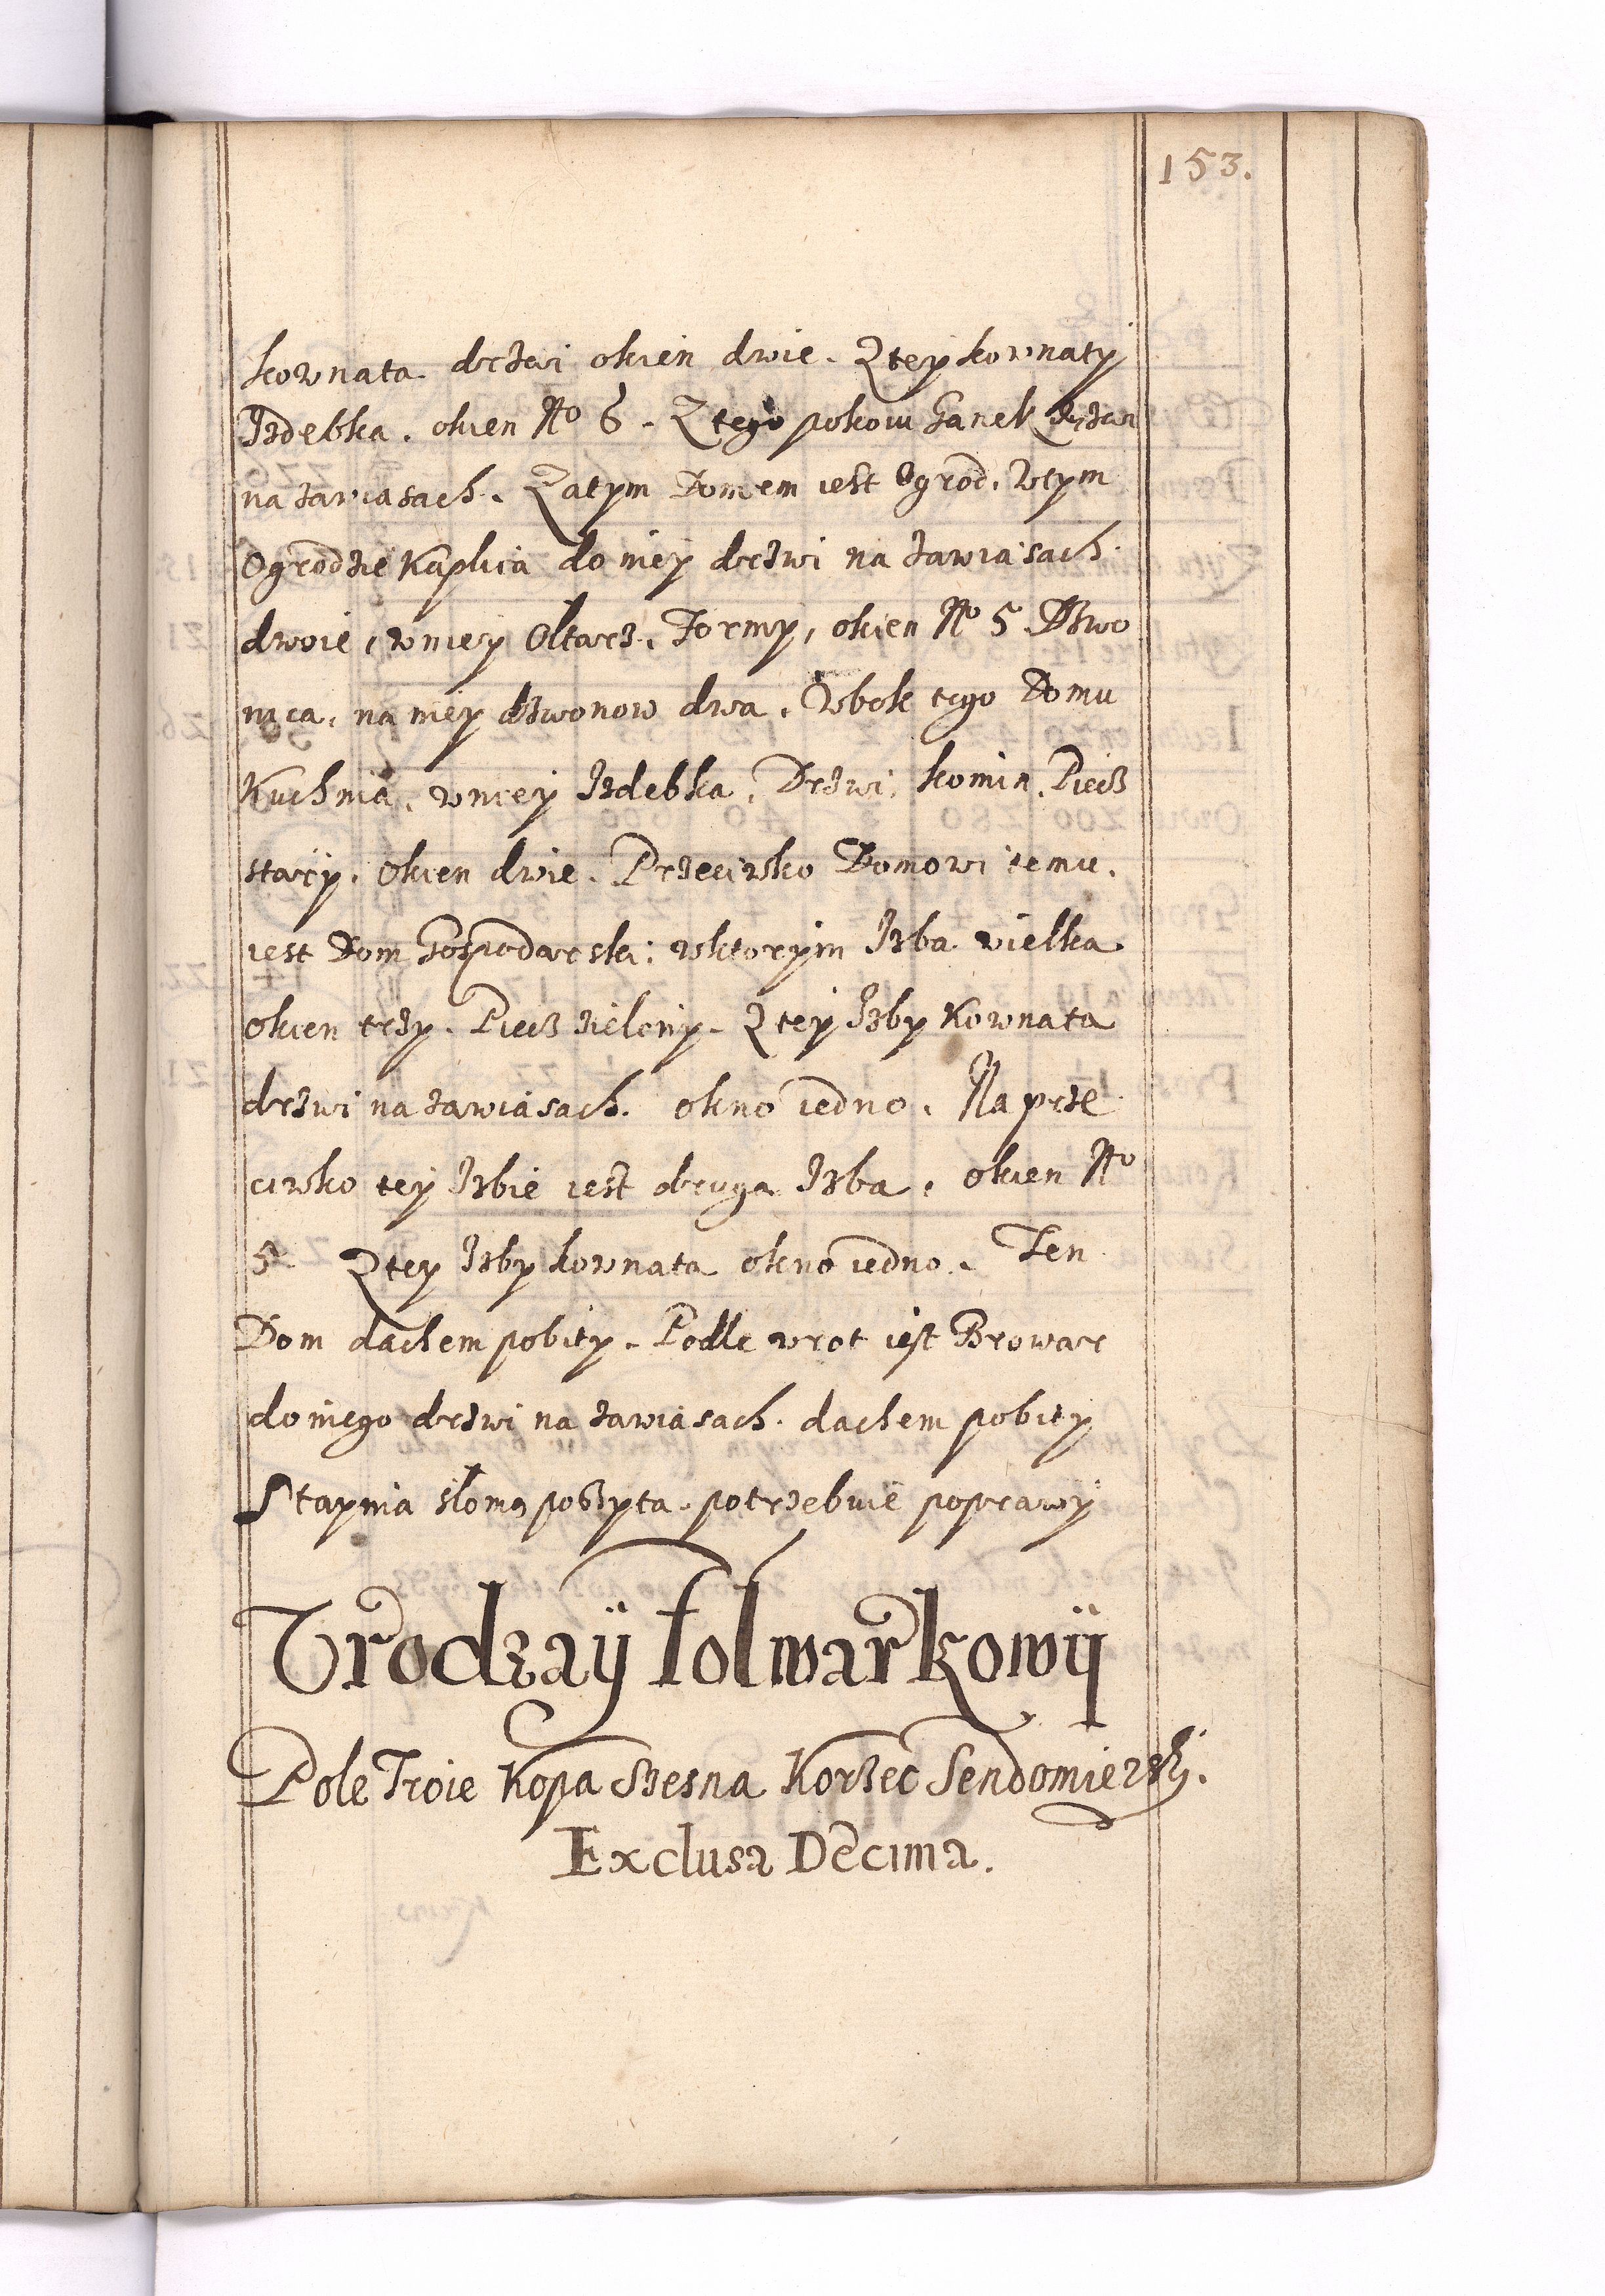 153.
kownata drzwi okien dwie. Z tey kownaty
Izdebka. okien No 6. Z tego pokoiu Ganek drzwi
na zawiasach. Zatym Domem iest Ogrod. Wtym
Ogrodzie Kaplica do niey drzwi na zawiasach
dwoie, w niey Ołtarz. Formy, okien No 5. Dzwo
nica, na niey dzwonow dwa. Wbok tego Domu
Kuchnia, w niey Izdebka, Drzwi, komin, Piecz
stary. Okien dwie. Przeciwko Domowi temu.
iest Dom Gospodarski: wktorym Izba wielka
okien trzy. Piecz zielony. Z tey Izby Kownata
drzwi na zawiasach. okno iedno. Na prze
ciwko tey Izbie iest druga Izba. okien No
5. Z tey Izby kownata okno iedno. Ten
Dom dachem pobity. Podle wrot iest Browar
do niego drzwi na zawiasach. dachem pobity
Staynia słomą poszyta. potrzebuie poprawy
Vrodzaÿ folwarkowÿ
Pole Troie Kopa Szesna Korzec Sendomierski.
Exclusa Decima.